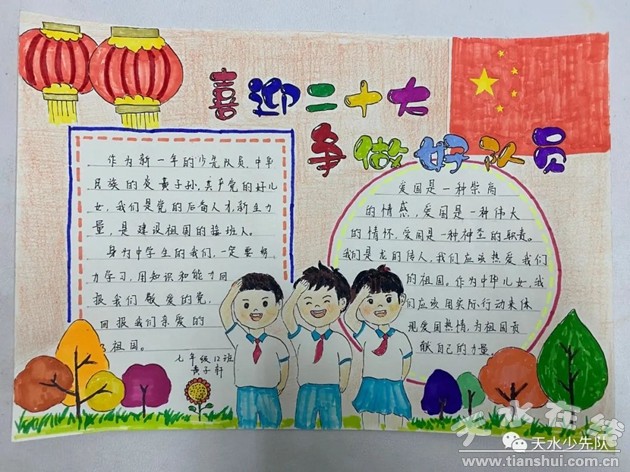 喜迎二十大
争做好队员
作为新一年的少先队员,中华
民族的炎黄子孙,共产党的好儿
女,我们是党的后备人才,新生力
量,是建设祖国的接班人。
身为中学生的我们,一定要努
力学习,用知识和能力回
报我们敬爱的党,
回报我们亲爱的
祖国。
七年级12班
黄子轩
爱国是一种崇高
的情感,爱国是一种伟大
的情怀,爱国是一种神圣的职责。
我们是龙的传人,我们应该热爱我们
的祖国。作为中华儿女,我
们应该用实际行动来体
现爱国热情,为祖国贡
献自己的力量。
天水在线
天水少先队
www.tianshui.com.cn